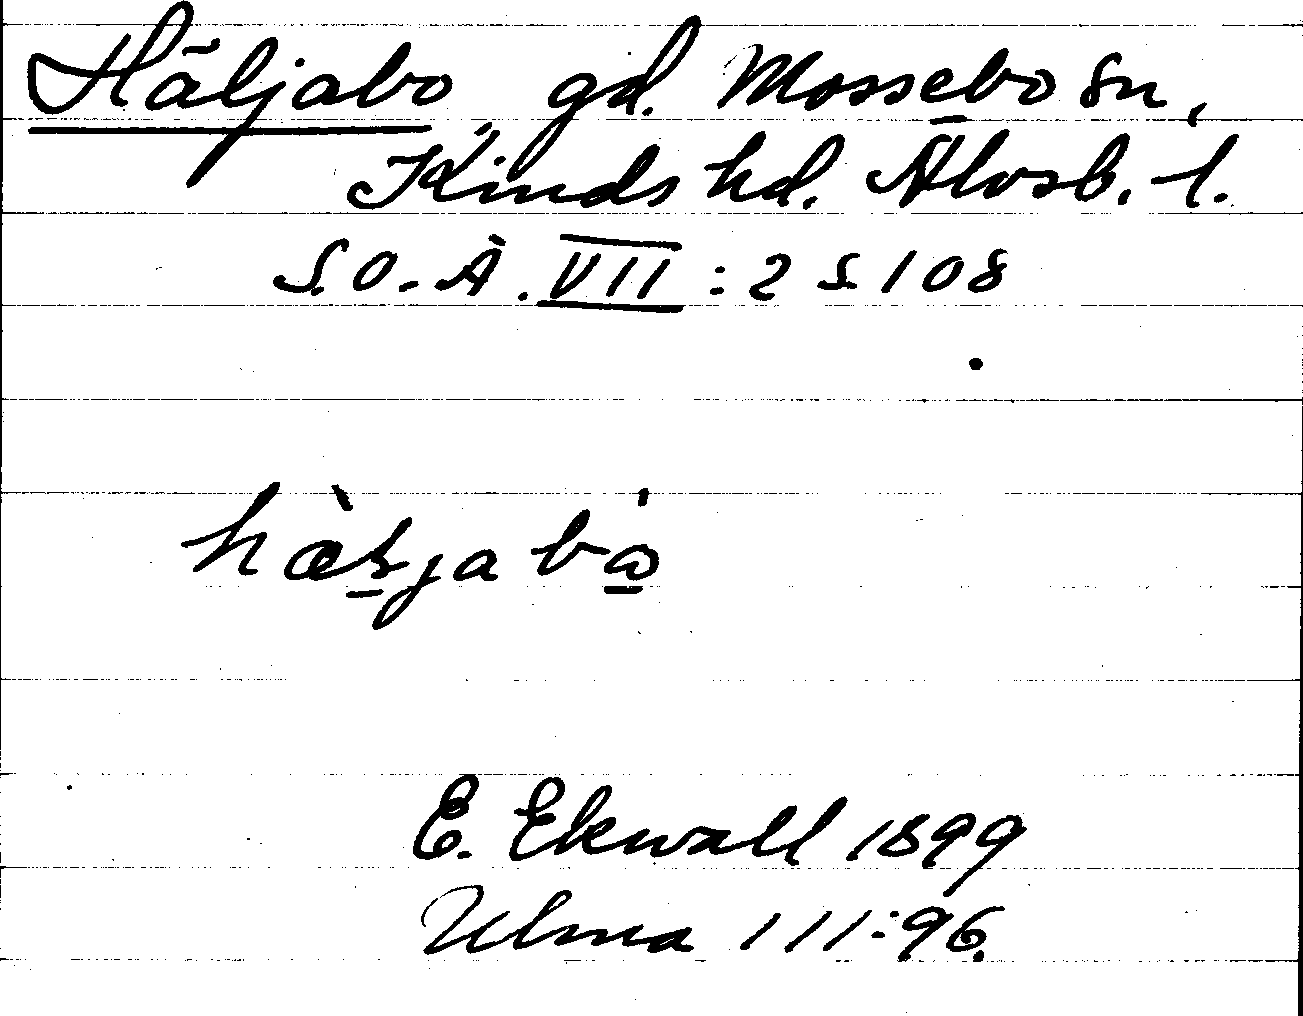 Häljabo, gd. Mossebo sn,
Kinds hd. Älvsb. l.
S.O.-Ä. VII : 2 s. 108
E. Ekwall 1899
Ulma 111:96.